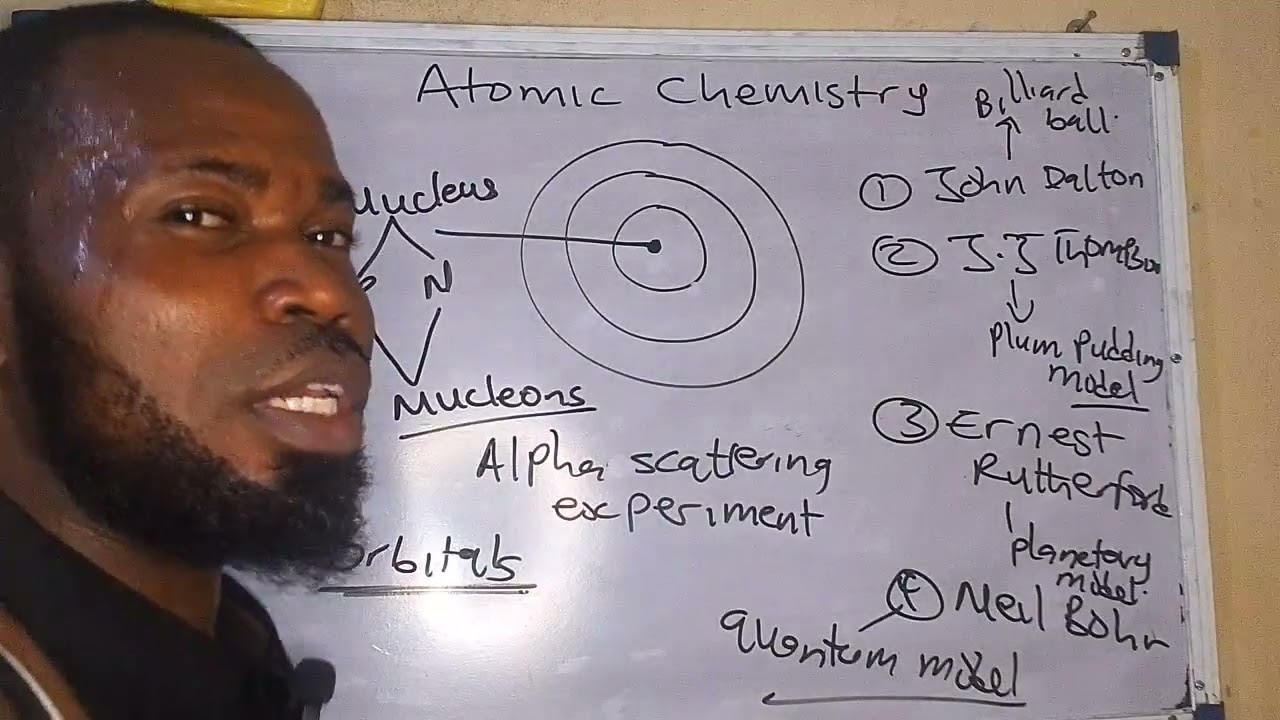 Atomic Chemistry
Billiard
ball.
① John Dalton
② J.J Thomson
Plum Pudding
Model
③ Ernest
Rutherford
Planetary
model.
④ Neil Bohr
Quantum model
Nucleus
P N
Nucleons
Alpha scattering
experiment
orbitals